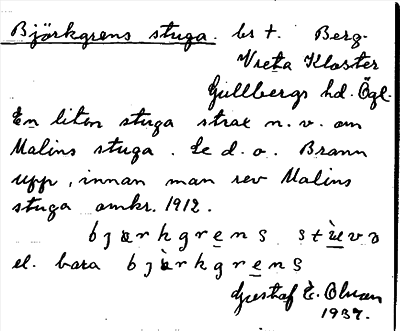 Björkgrens stuga. br t. Berg.
Vreta Kloster
Gullbergs hd. Ögl.
En liten stuga strax n. v. om
Malins stuga. Se d. o. Brann
upp, innan man rev Malins
stuga omkr. 1912.
bjærkgrens stuvə
el. bara bjærkgrens
Gustaf E. Olman
1937.